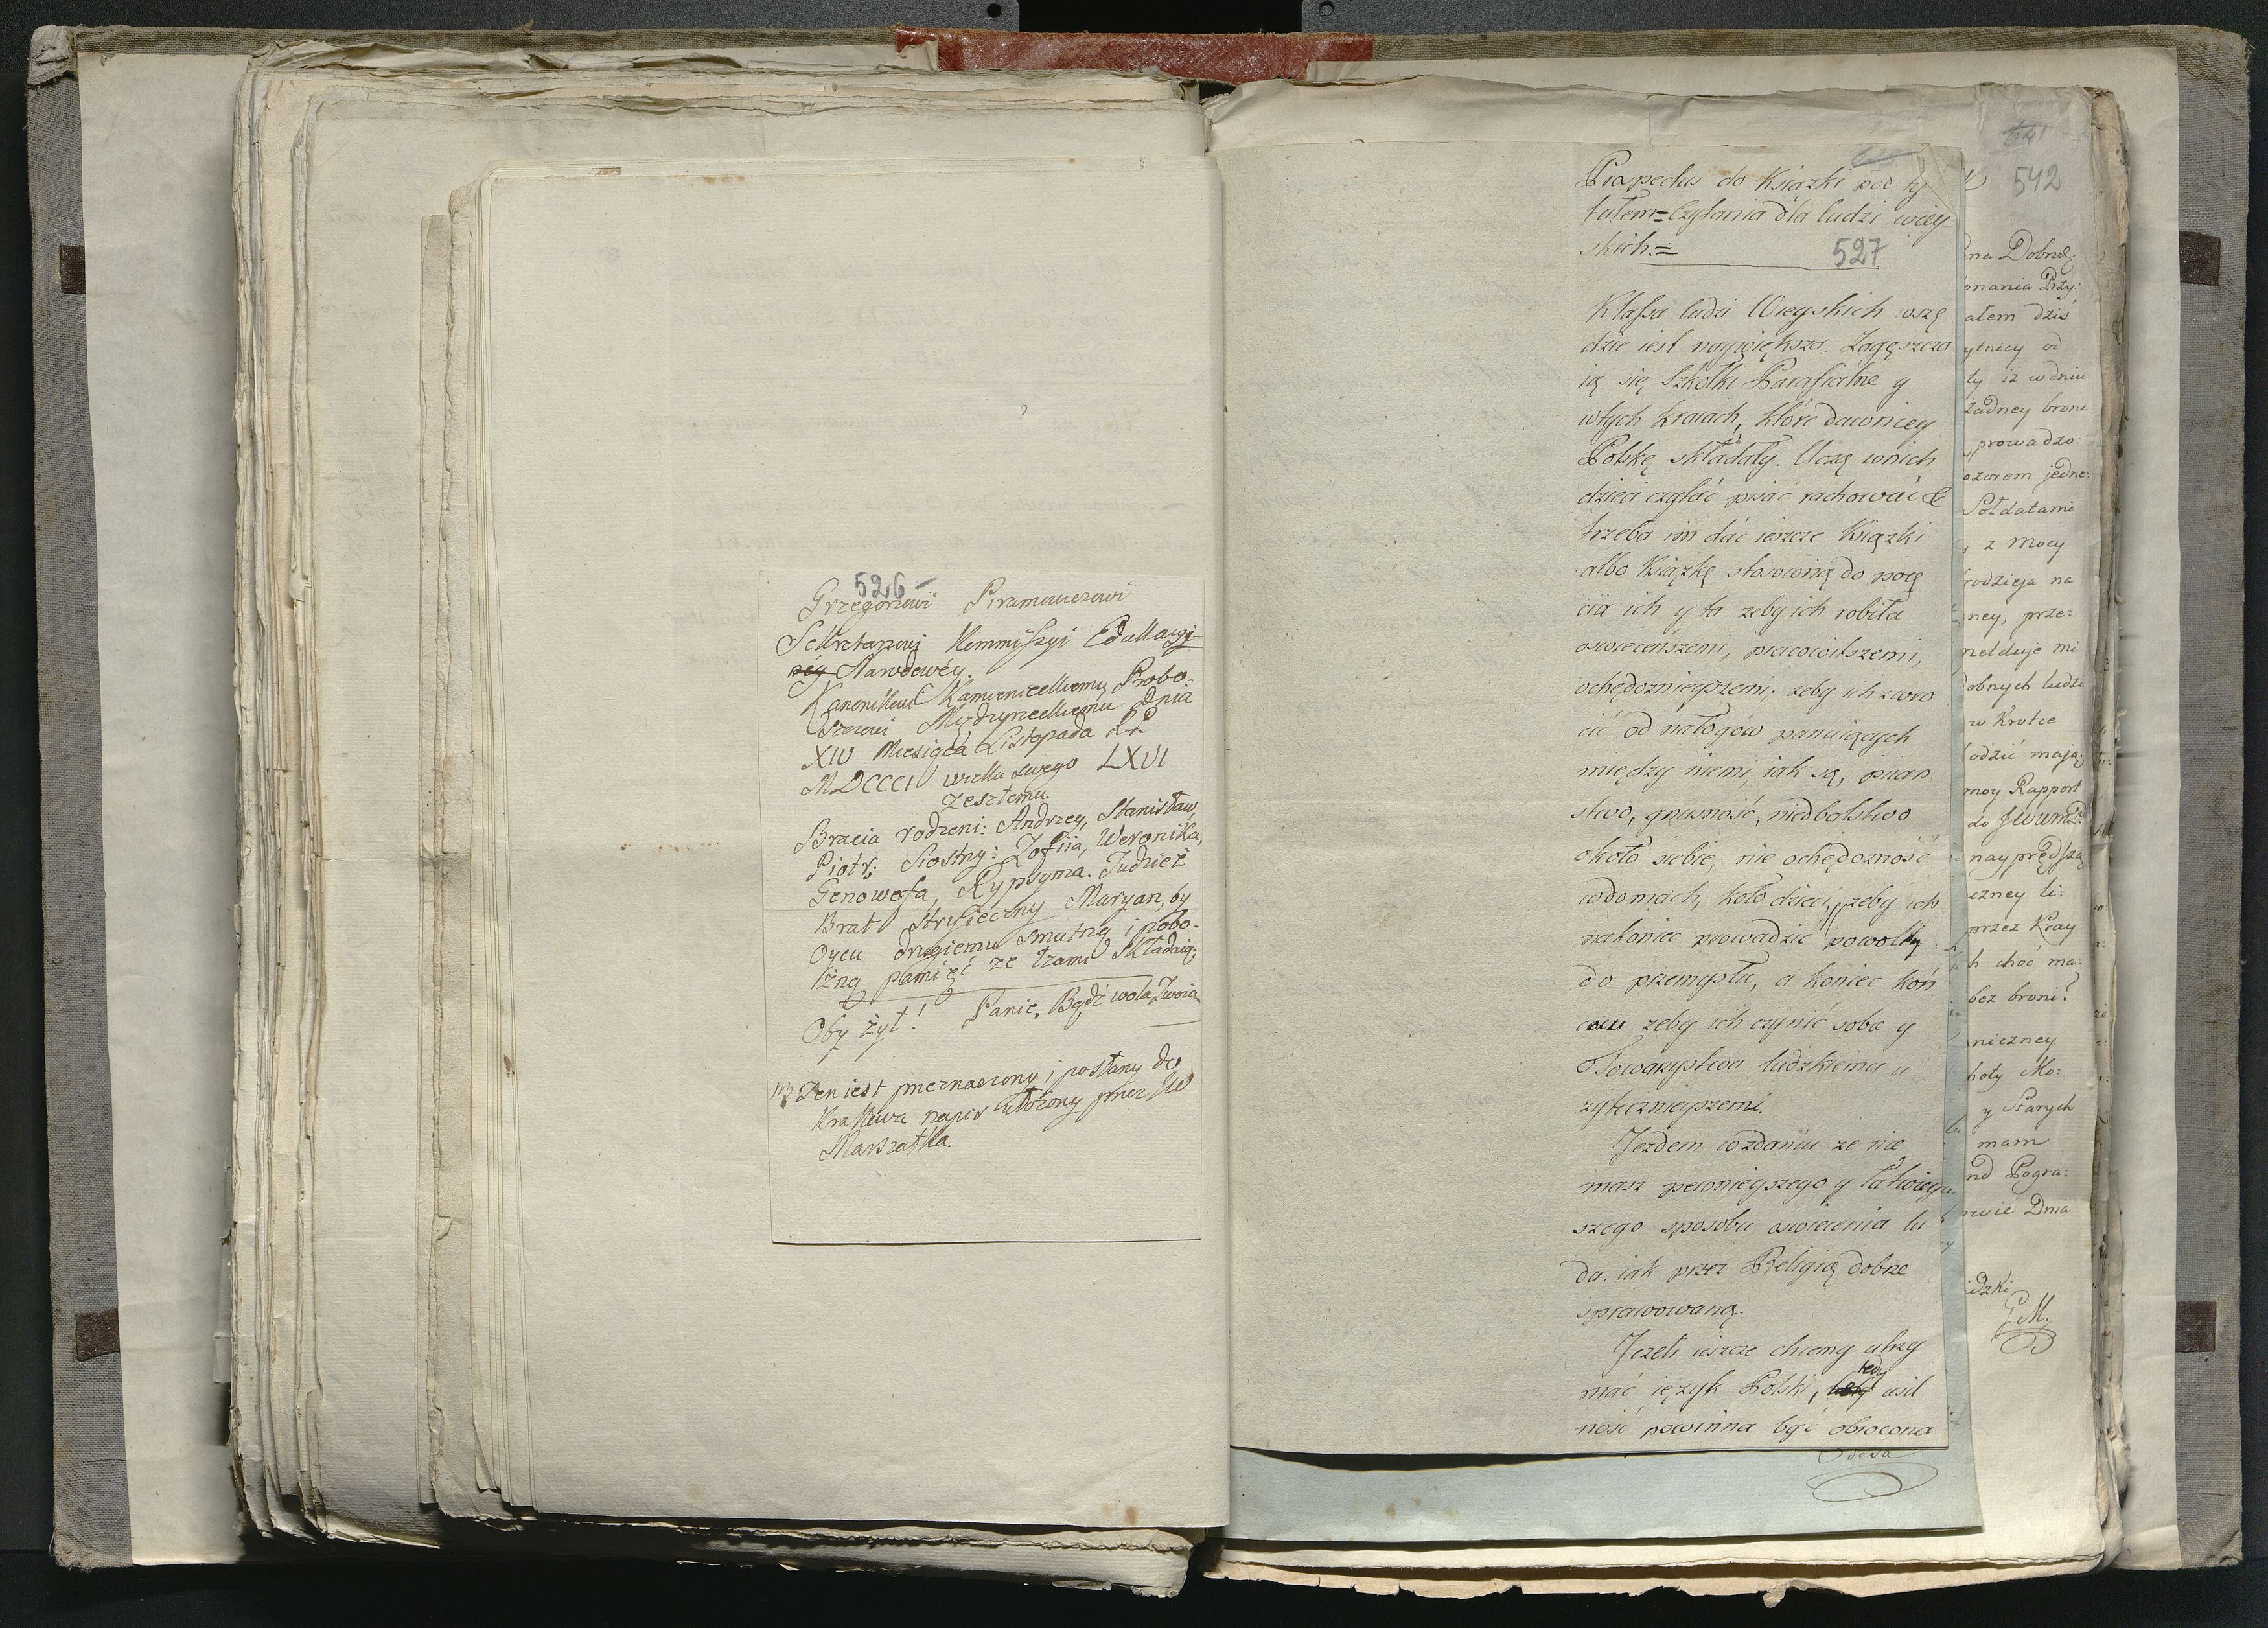 526
Grzegorzowi Piramowiczowi
Sekretarzowi Kommissyi Edukacyi
néy Narodowéy.
Kanonikowi Kamienieckiemu, Probo-
szczowi Międzyrzeckiemu Dnia
XIV Miesiąca Listopada R.P.
MDCCCI wieku swego LXVI
zeszłemu.
Bracia rodzeni: Andrzey, Stanisław,
Piotr; Siostry: Zofiia, Weronika,
Genowefa, Rypsyma. Tudzież
Brat stryieczny Maryan, by
Oycu drugiemu smutną i pobo-
żną pamięć ze łzami składaią.
Oby żył! Panie, Bądź wola Twoia
NB Ten iest przeznaczony i posłany do
Krakowa napis ułożony przez JW
Marszałka.
Prospectus do Ksiazki pod ty
tułem = Czytania dla ludzi wiey
skich. =
527
Klassa ludzi Wieyskich wszę
dzie iest naywiększa. Zagęszcza
ią się Szkołki Parafialne y
wtych kraiach, które dawniey
Polskę składały. Uczą wnich
dzieci czytać pisać rachować &
trzeba im dać ieszcze Książki
albo Książkę stosowną do poię
cia ich y to zeby ich robiła
oswieceńszemi, pracowitszemi,
ochędoznieyszemi; zeby ich zwro
cić od nałogów panuiących
między niemi, iak są, piian
stwo, gnusność, niedbalstwo
około siebie, nie ochędozność
wdomach, koło dzieci, zeby ich
nakoniec prowadzić powoli
do przemysłu, a koniec koń
cow zeby ich czynić sobie y
Towarzystwu ludzkiemu u
zytecznieyszemi.
Jezdem wzdaniu ze nie
masz pewnieyszego y łatwiey
szego sposobu oswiecenia lu
du, iak przez Religią dobrze
sprawowaną.
Jezeli ieszcze chcemy utrzy
mać ięzyk Polski, tedy usil
ność powinna być obrocona
542
na Dobrodz;
onania Przy:
ałem dziś
ytnicy od
ty iz wdniu
żadney broni
prowadzo:
ozorem jedne:
Sołdatami
z Mocy
rodzieja na
ney, prze:
melduje mi
dobnych ludzi
w Krotce
odzić mają;
moy Rapport
do JWWMP:
nayprędszą
czney li:
przez Kray
h choć ma:
bez broni?
niczney
hoty Mo:
y Starych
mam
nd Pogra:
wie Dnia
idzki
GM.